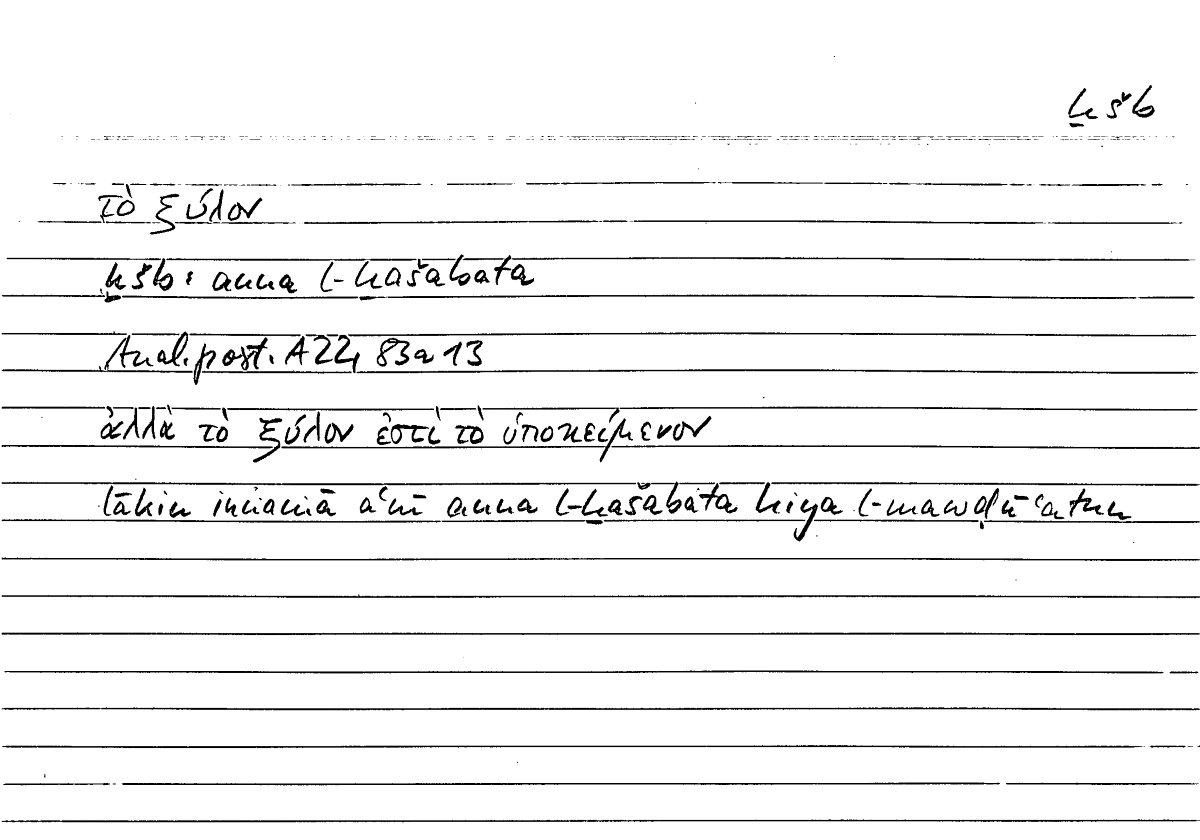 ḫšb
τὸ ξύλον
ḫšb: anna l-ḫašabata
Anal. post. A22, 83a13
ἀλλὰ τὸ ξύλον ἐστὶ τὸ ὑποκείμενον
lākin innamā aʿnī anna l-ḫašabata hiya l-mawḍūʿatun